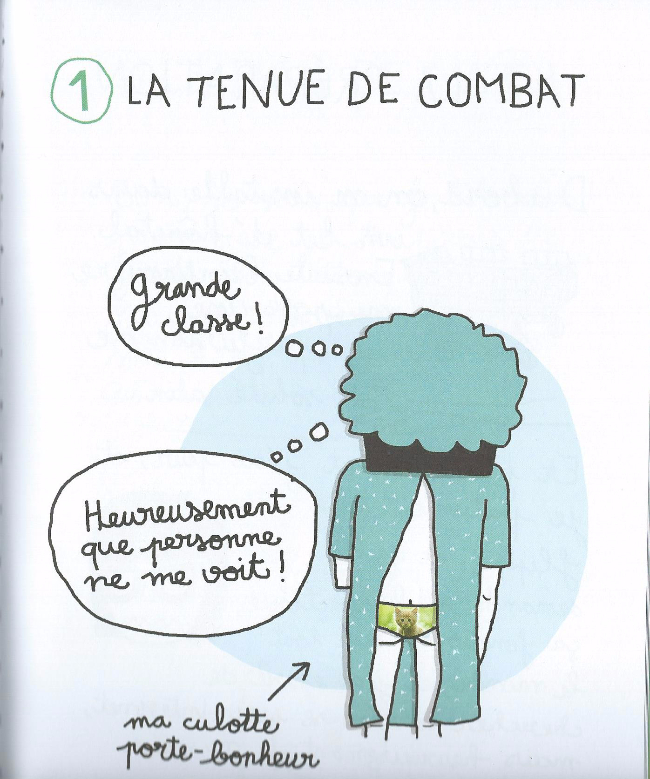 1 LA TENUE DE COMBAT
Grande
classe !
Heureusement
que personne
ne me voit !
ma culotte
porte-bonheur